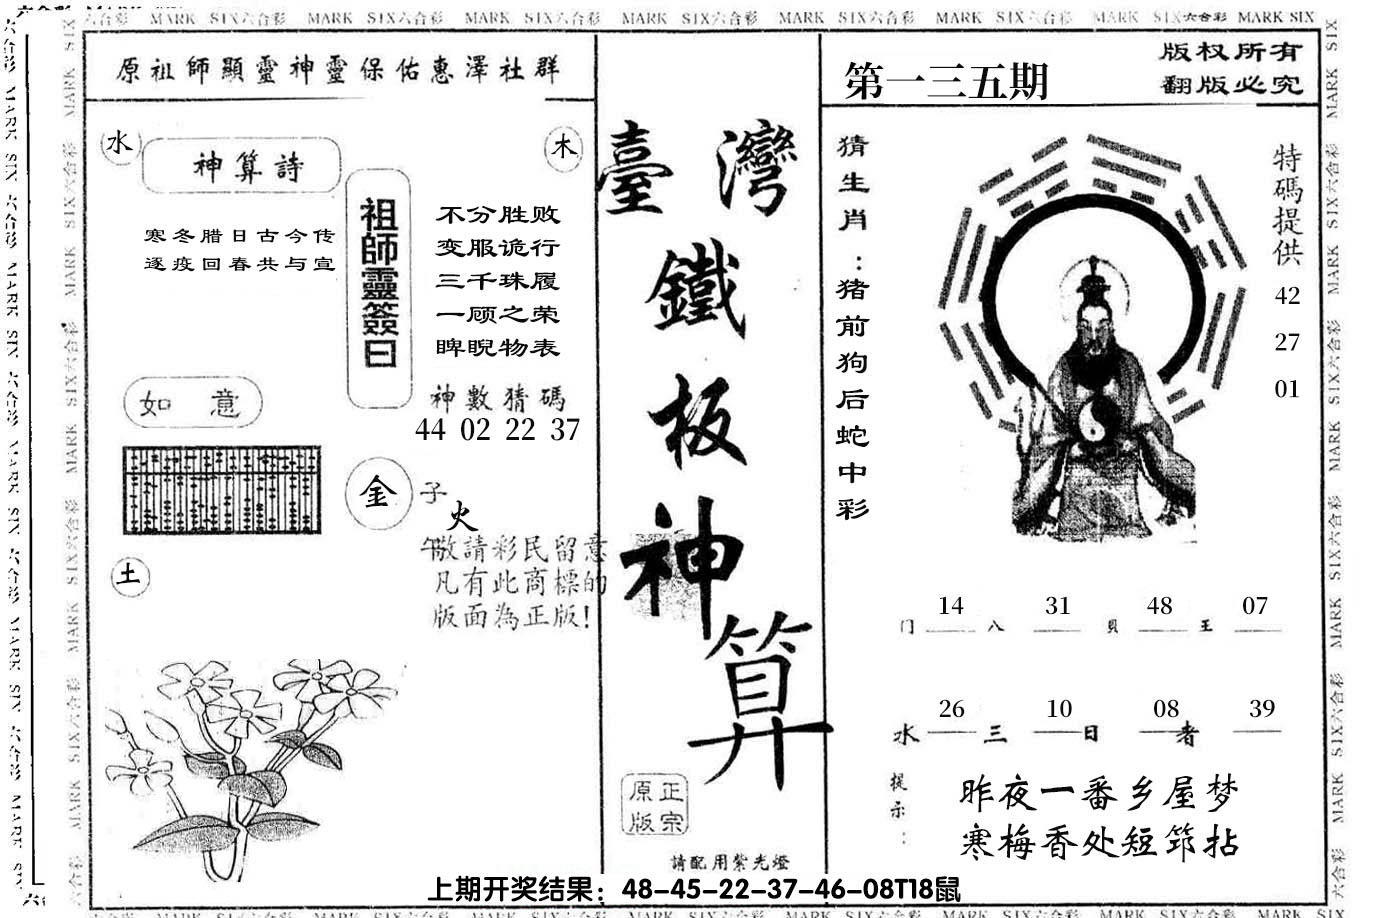 MARK SIX六合彩 MARK SIX六合彩 MARK SIX六合彩 MARK SIX六合彩 MARK SIX六合彩 MARK SIX六合彩 MARK SIX六合彩 MARK SIX
原祖師顯靈神靈保佑惠澤社群
水
神算詩
木
寒冬腊日古今传
逐疫回春共与宣
祖師靈簽曰
不分胜败
变服诡行
三千珠履
一顾之荣
睥睨物表
如意
神數猜碼
44 02 22 37
金
子
火
午
敬請彩民留意
凡有此商標的
版面為正版!
土
臺灣
鐵
板
神
算
正宗
原版
請配用紫光燈
第一三五期
版权所有
翻版必究
猜生肖:猪前狗后蛇中彩
特碼提供
42
27
01
14 31 48 07
门 八 貝 王
26 10 08 39
水 三 日 者
提示:
昨夜一番乡屋梦
寒梅香处短筇拈
上期开奖结果：48-45-22-37-46-08T18鼠